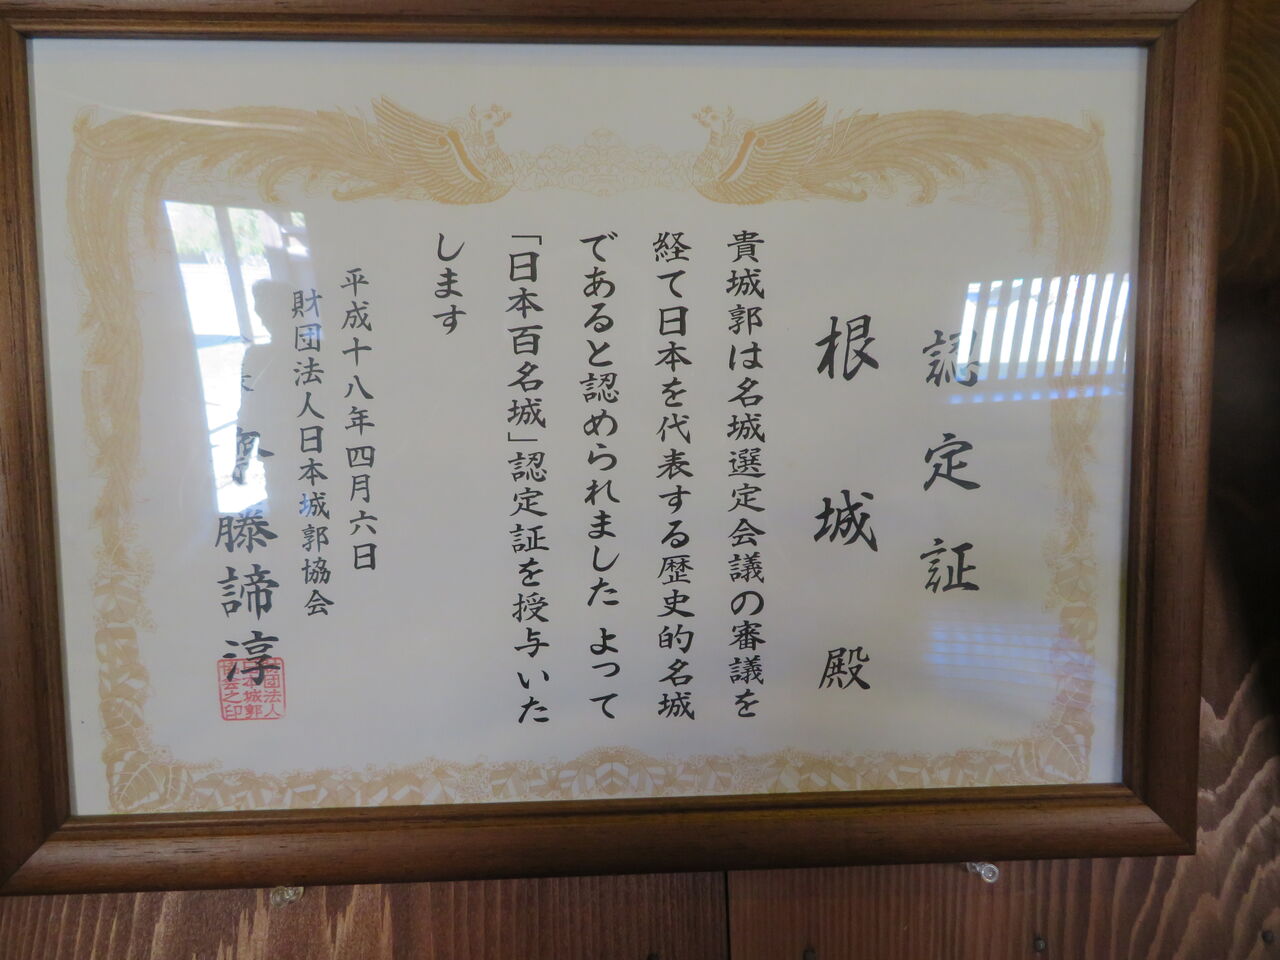 認定証
根城殿
貴城郭は名城選定会議の審議を
経て日本を代表する歴史的名城
であると認められました よって
「日本百名城」認定証を授与いた
します
平成十八年四月六日
財団法人日本城郭協会
藤諦淳
財団法人
日本城郭
協会之印